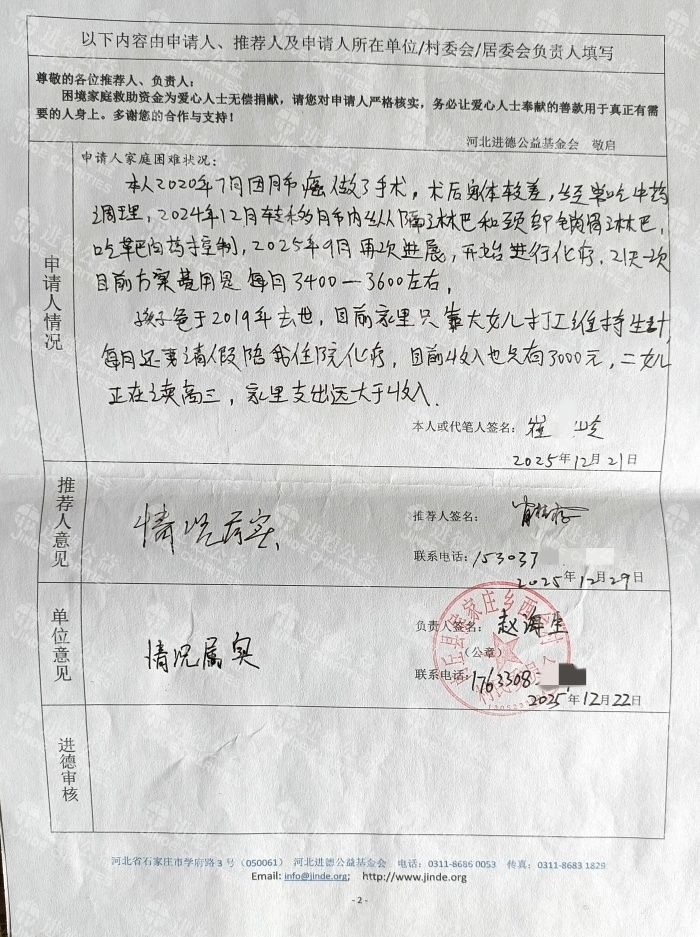 以下内容由申请人、推荐人及申请人所在单位/村委会/居委会负责人填写
尊敬的各位推荐人、负责人:
困境家庭救助资金为爱心人士无偿捐献,请您对申请人严格核实,务必让爱心人士奉献的善款用于真正有需
要的人身上。多谢您的合作与支持!
河北进德公益基金会 敬启
申请人情况
申请人家庭困难状况:
本人2020年7月因肺癌做了手术,术后身体较差,一直吃中药
调理,2024年12月转移肺内纵隔淋巴和颈部锁骨淋巴,
吃靶向药控制,2025年9月再次进展,开始进行化疗,21天一次
目前方案费用是每月3400—3600左右,
孩子爸于2019年去世,目前家里只靠大女儿打工维持生计,
每月还要请假陪我住院化疗,目前收入也只有3000元,二女儿
正在读高三,家里支出远大于收入.
本人或代笔人签名:崔
2025年12月21日
推荐人意见
情况属实
推荐人签名:
联系电话:153037
2025年12月29日
单位意见
情况属实
负责人签名:赵海生
(公章)
联系电话:1763308
2025年12月22日
进德审核
河北省石家庄市学府路3号(050061) 河北进德公益基金会 电话:0311-8686 0053 传真:0311-8683 1829
Email: info@jinde.org; http://www.jinde.org
- 2 -